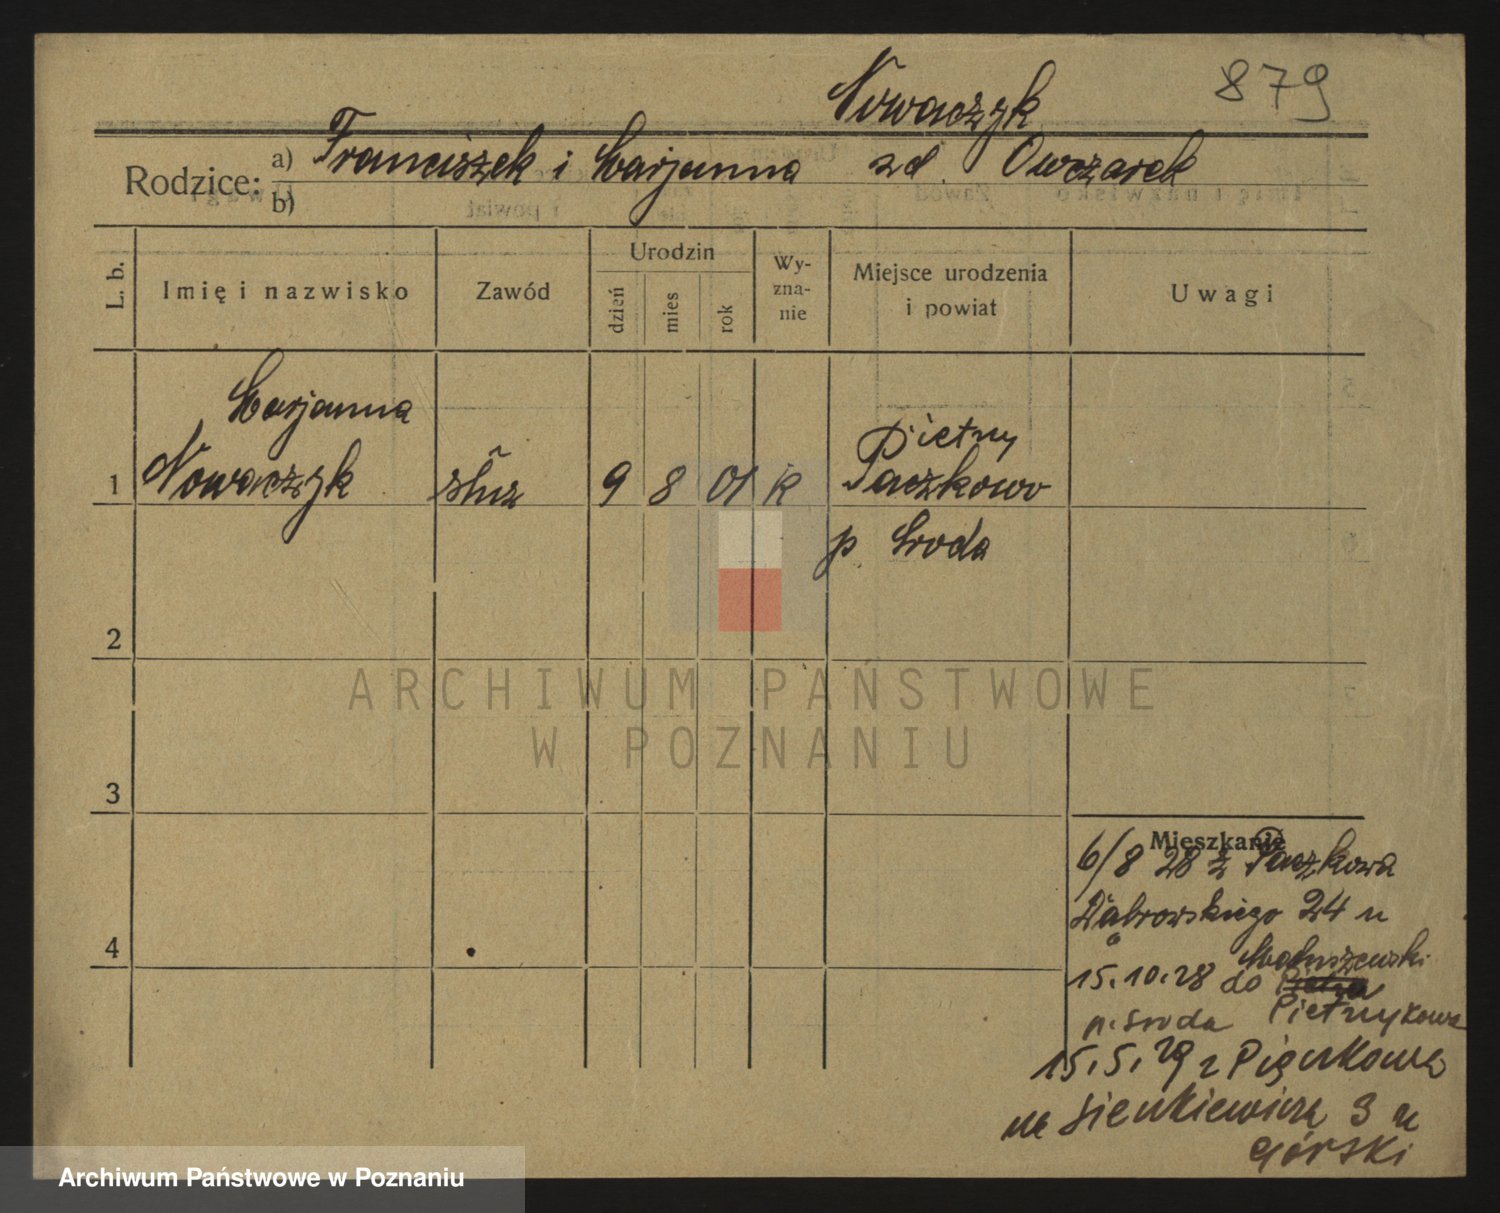 879
Nowaczyk
Rodzice: a) Franciszek i Marjanna zd. Owczarek
b)
L. b.
Imię i nazwisko
Zawód
Urodzin
dzień
mies
rok
Wy-
zna-
nie
Miejsce urodzenia
i powiat
Uwagi
Marjanna
1 Nowaczyk służ 9 8 01 R
Paczkowo
p Środa
2
3
4
ARCHIWUM PAŃSTWOWE
W POZNANIU
Mieszkanie
6/8 28 z Paczkowa
Dąbrowskiego 24 u
Matuszewski
15.10.28 do
p. Sroda
15.5.29 z
na Sienkiewicza 3 u
Górski
Archiwum Państwowe w Poznaniu